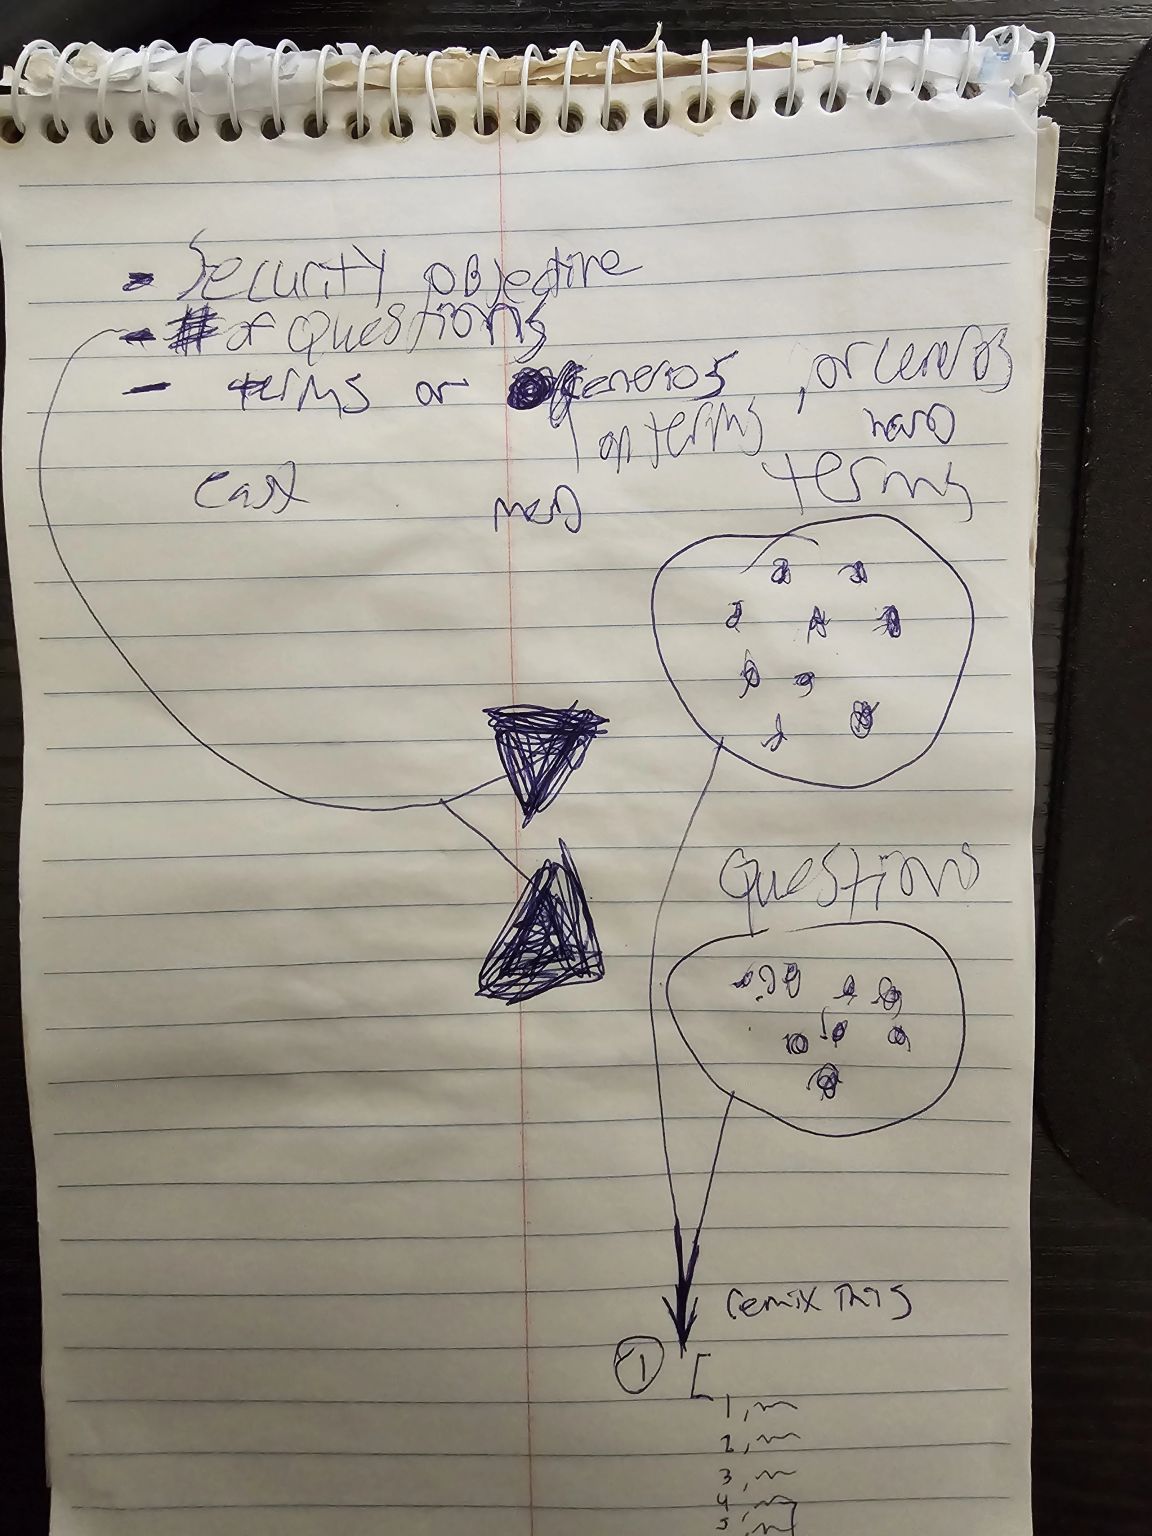 - Security objective
- # of questions
- terms or scenerios, or scenerios
on terms
hard
easy
med
terms
Questions
remix this
1 [
1,
2,
3,
4,
5,
]